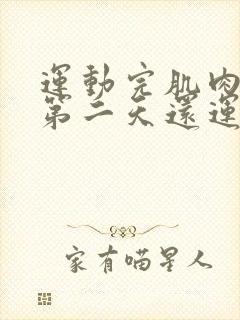 運動完肌肉
第二天還運
家有喵星人